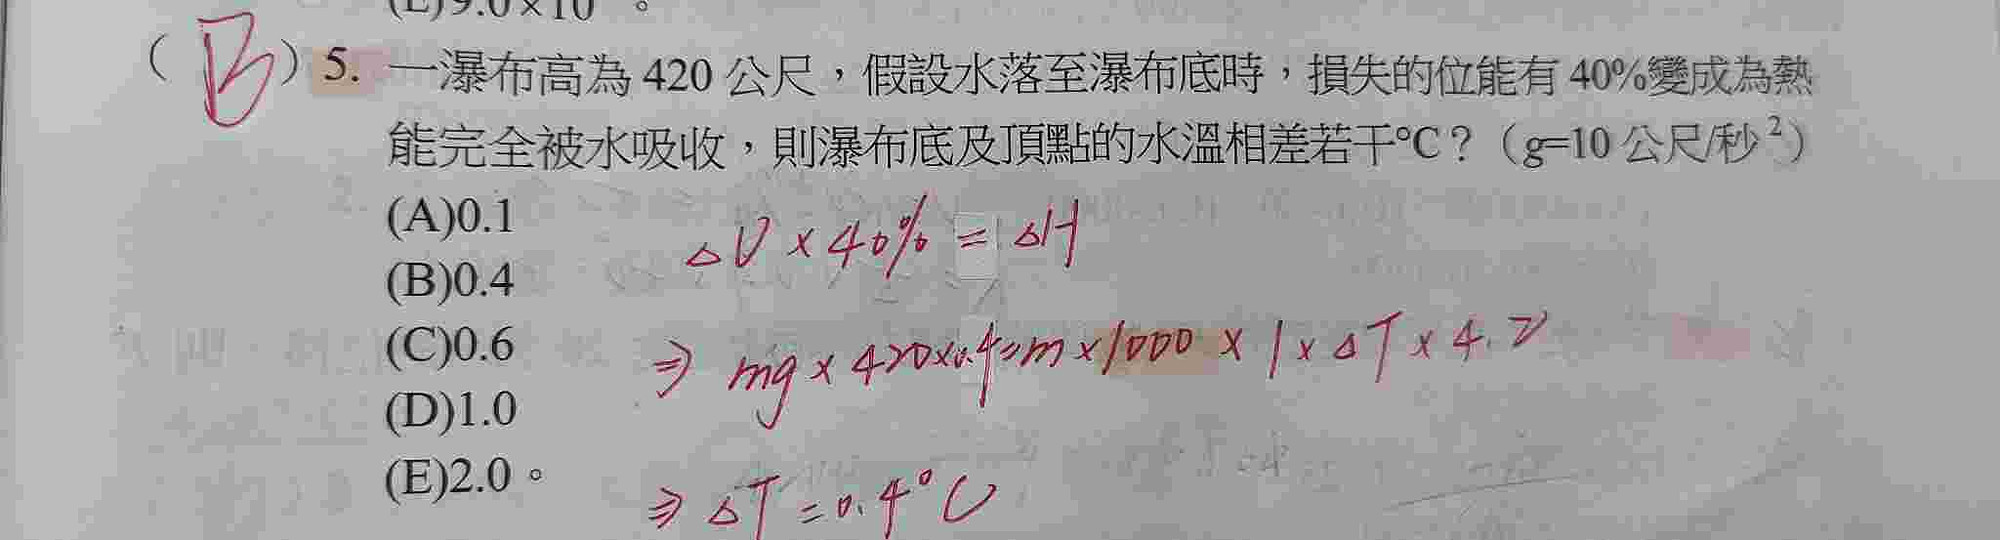 (E)9.0×10 。
( B ) 5. 一瀑布高為 420 公尺，假設水落至瀑布底時，損失的位能有 40%變成為熱
能完全被水吸收，則瀑布底及頂點的水溫相差若干°C？（g=10 公尺/秒²）
(A)0.1
△U × 40% = △H
(B)0.4
(C)0.6
⇒ mg × 420×0.4=m×1000 × 1 × △T × 4.2
(D)1.0
(E)2.0。
⇒ △T = 0.4°C